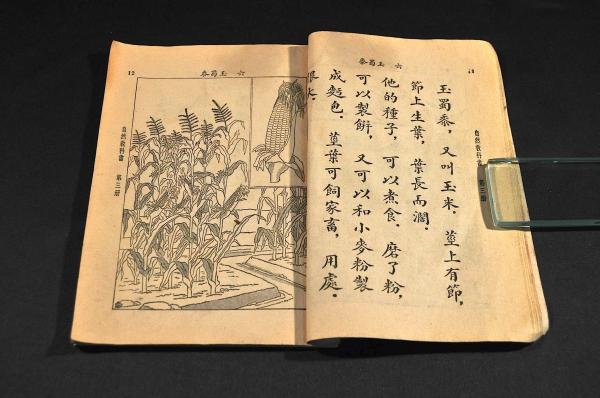 六 玉蜀黍
自然教科書 第三册
玉蜀黍，又叫玉米．莖上有節，
節上生葉，葉長而濶．
他的種子，可以煮食．磨了粉，
可以製餅，又可以和小麥粉製
成麪包．莖葉可飼家畜，用處
很大．
六 玉蜀黍
12
自然教科書 第三册